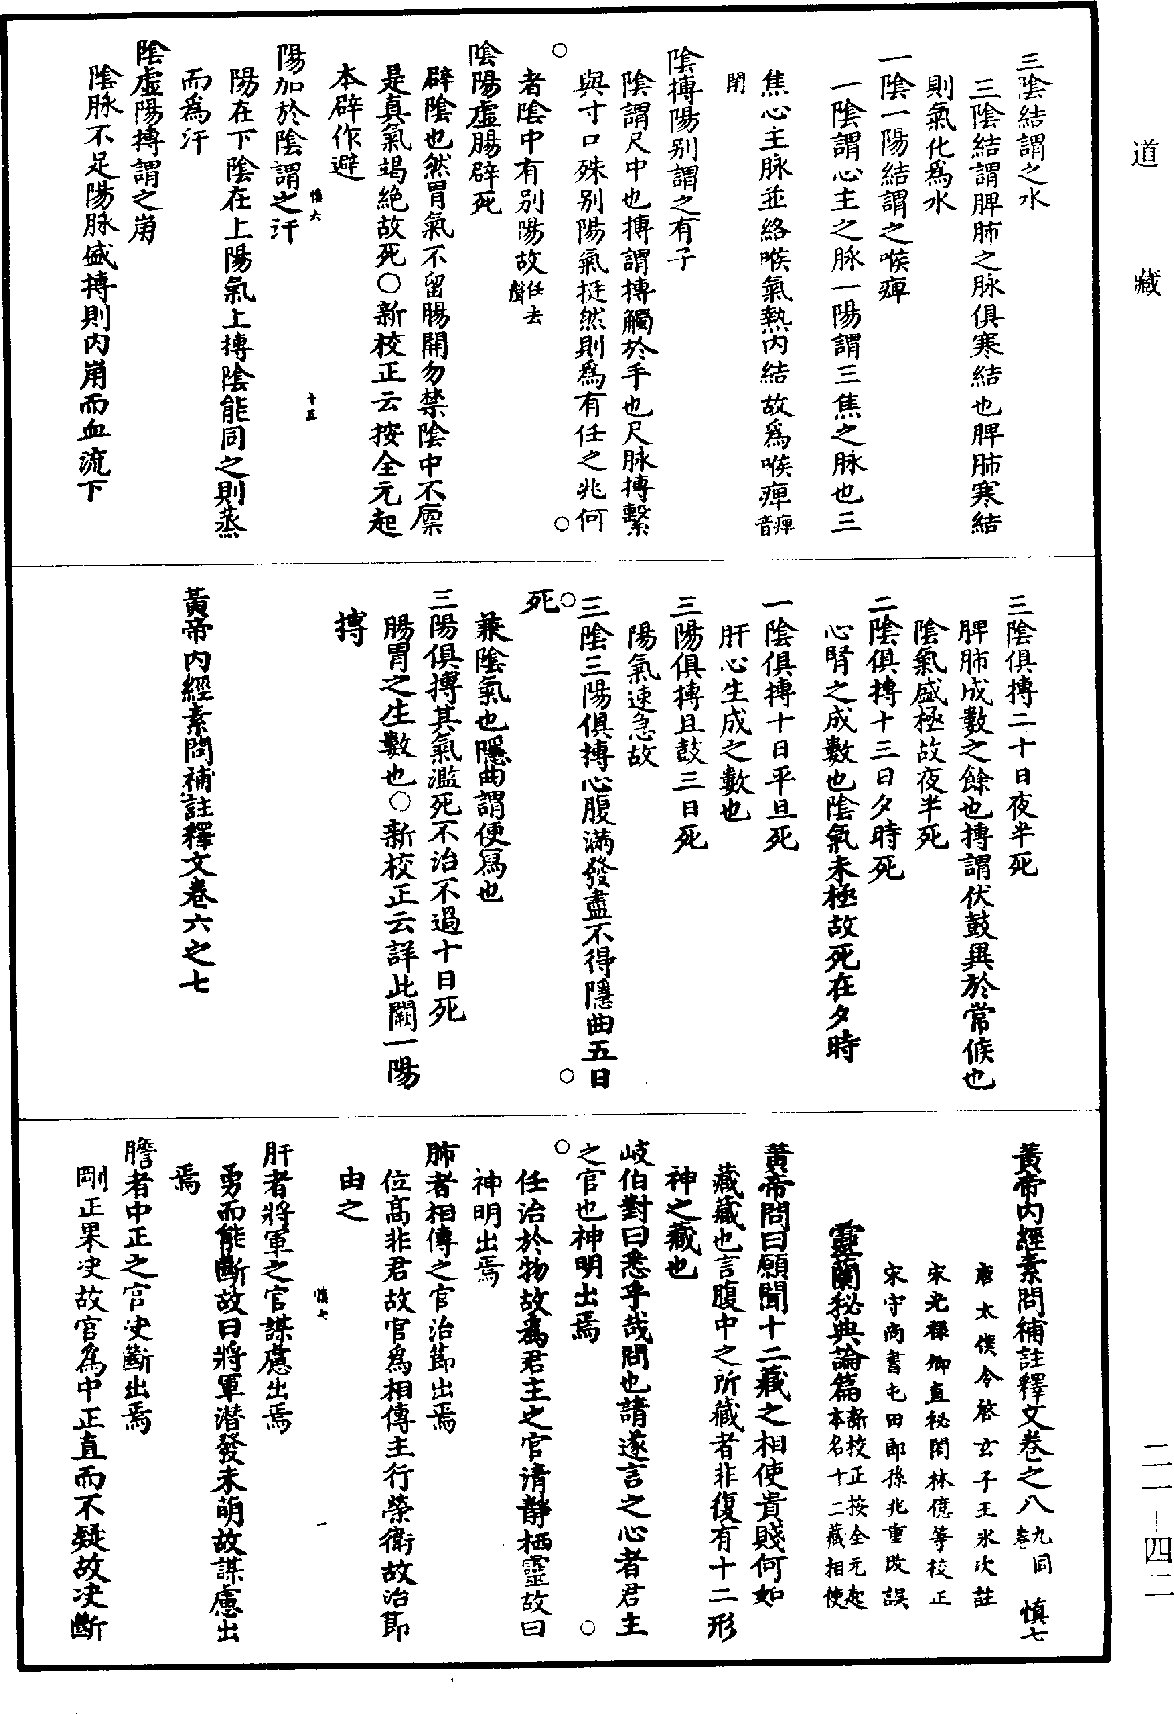 道藏
三陰結謂之水
三陰結謂脾肺之脉俱寒結也脾肺寒結
則氣化爲水
一陰一陽結謂之喉痺
一陰謂心主之脉一陽謂三焦之脉也三
焦心主脉並絡喉氣熱內結故爲喉痺痺音
閉
陰搏陽别謂之有子
陰謂尺中也搏謂搏觸於手也尺脉搏繫
與寸口殊别陽氣挺然則爲有任之兆何
者陰中有别陽故任去聲
陰陽虛腸辟死
辟陰也然胃氣不留腸開勿禁陰中不廩
是真氣竭絶故死○新校正云按全元起
本辟作避
慎六
十五
陽加於陰謂之汗
陽在下陰在上陽氣上搏陰能同之則蒸
而爲汗
陰虛陽搏謂之崩
陰脉不足陽脉盛搏則內崩而血流下
三陰俱搏二十日夜半死
脾肺成數之餘也搏謂伏鼓異於常候也
陰氣盛極故夜半死
二陰俱搏十三日夕時死
心腎之成數也陰氣未極故死在夕時
一陰俱搏十日平旦死
肝心生成之數也
三陽俱搏且鼓三日死
陽氣速急故
三陰三陽俱搏心腹滿發盡不得隱曲五日
死
兼陰氣也隱曲謂便寫也
三陽俱搏其氣濫死不治不過十日死
腸胃之生數也○新校正云詳此闕一陽
搏
黃帝內經素問補註釋文卷六之七
黃帝內經素問補註釋文卷之八九同卷 慎七
唐太僕令啓玄子王氷次註
宋光祿卿直秘閣林億等校正
宋守尚書屯田郎孫兆重改誤
靈蘭秘典論篇新校正按全元起本名十二藏相使
黃帝問曰願聞十二藏之相使貴賤何如
藏藏也言腹中之所藏者非復有十二形
神之藏也
岐伯對曰悉乎哉問也請遂言之心者君主
之官也神明出焉
任治於物故爲君主之官清靜栖靈故曰
神明出焉
肺者相傳之官治節出焉
位高非君故官爲相傳主行榮衛故治節
由之
慎七
一
肝者將軍之官謀慮出焉
勇而能斷故曰將軍潛發未萌故謀慮出
焉
膽者中正之官决斷出焉
剛正果决故官爲中正直而不疑故决斷
二一—四二